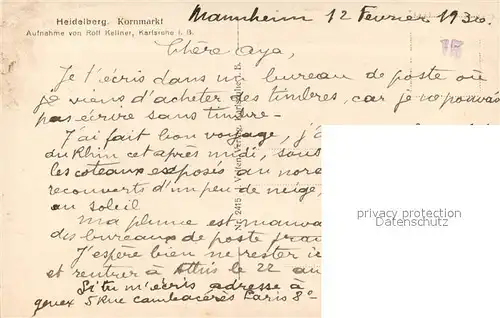 Heidelberg. Kornmarkt
Aufnahme von Rolf Kellner, Karlsruhe i. B.
Mannheim 12 Fevrier 1930.
Chère Aya,
Je t'écris dans un bureau de poste où
je viens d'acheter des timbres, car je ne pouvais
pas écrire sans timbre.
J'ai fait bon voyage, j'a
du Rhin cet après midi, sous
les coteaux exposés au nord
recouverts d'un peu de neige,
au soleil
Ma plume est mauva
des bureaux de poste fran
J'espère bien ne rester ic
et rentrer à Athis le 22 au
Si tu m'écris adresse à
genex 5 Rue Cambacérès Paris 8e
Nr. 2415
privacy protection